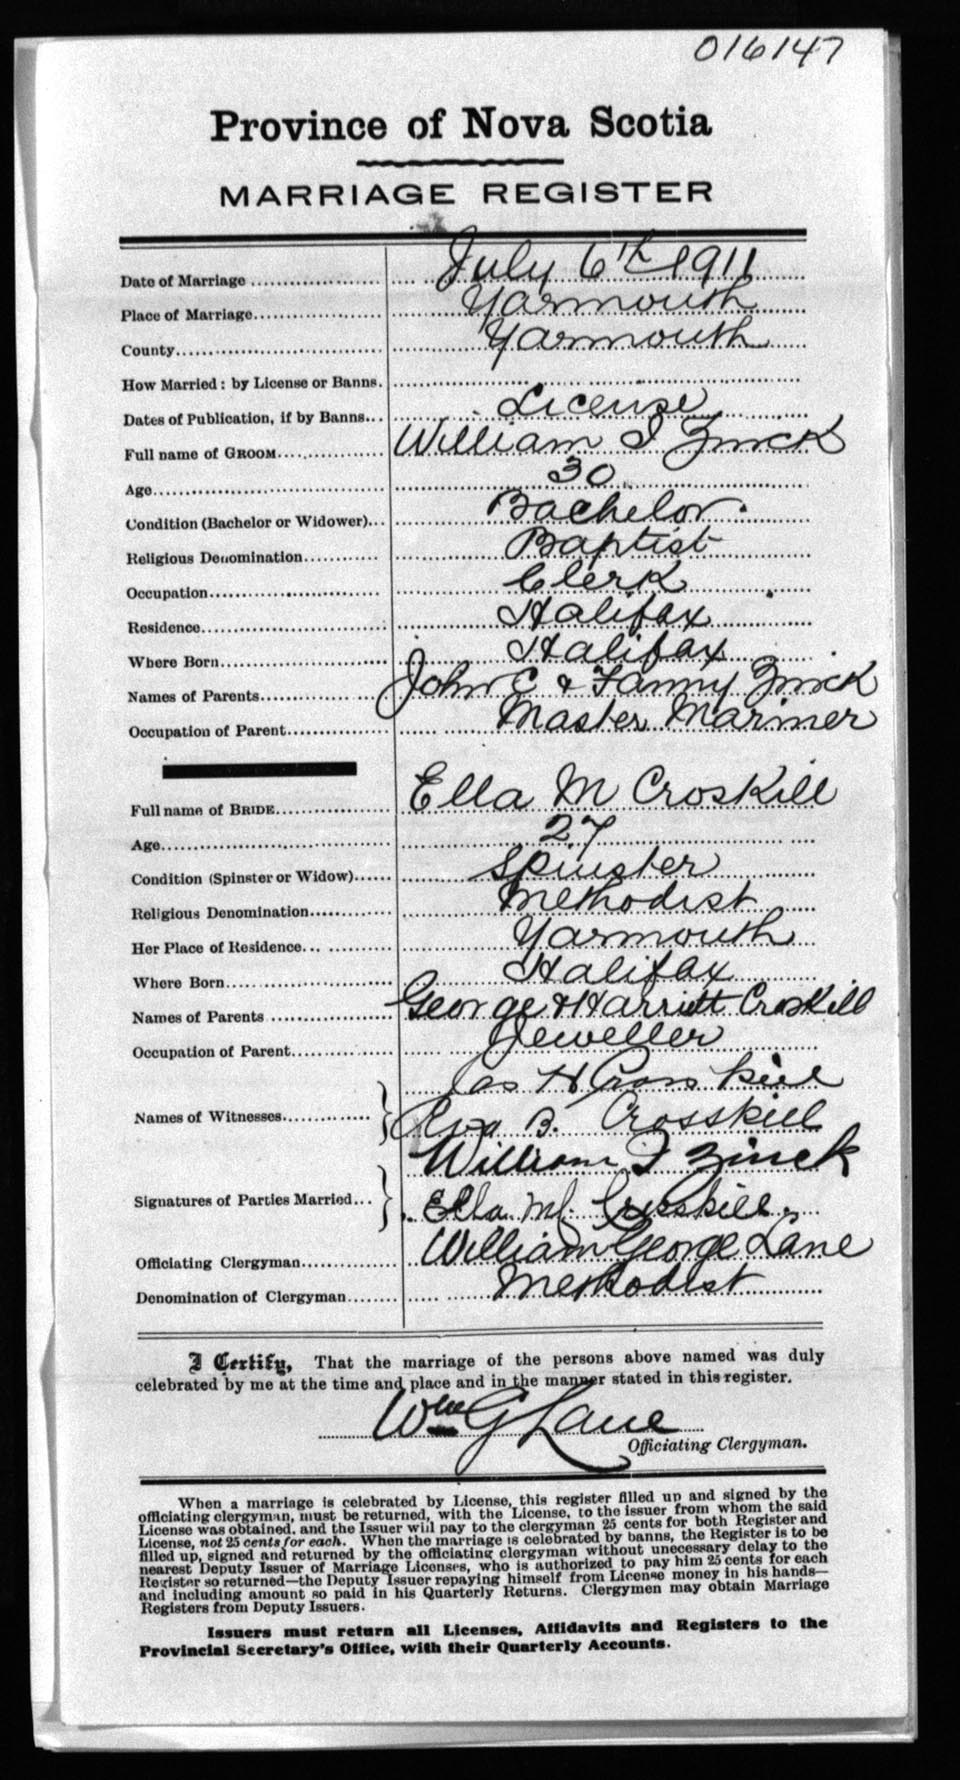 016147
Province of Nova Scotia
MARRIAGE REGISTER
Date of Marriage July 6th 1911
Place of Marriage Yarmouth
County Yarmouth
How Married: by License or Banns.
Dates of Publication, if by Banns License
Full name of GROOM William I Zinck
Age 30
Condition (Bachelor or Widower) Bachelor
Religious Denomination Baptist
Occupation Clerk
Residence Halifax
Where Born Halifax
Names of Parents John C & Fanny Zinck
Occupation of Parent Master Mariner
Full name of BRIDE Ella M Croskill
Age 27
Condition (Spinster or Widow) Spinster
Religious Denomination Methodist
Her Place of Residence Yarmouth
Where Born Halifax
Names of Parents George & Harriett Croskill
Occupation of Parent Jeweller
Jas H Crosskill
Names of Witnesses
B. Crosskill
William I Zinck
Signatures of Parties Married
Ella M. Crosskill.
Officiating Clergyman William George Lane
Denomination of Clergyman Methodist
I Certify, That the marriage of the persons above named was duly
celebrated by me at the time and place and in the manner stated in this register.
Wm G Lane
Officiating Clergyman.
When a marriage is celebrated by License, this register filled up and signed by the
officiating clergyman, must be returned, with the License, to the issuer from whom the said
License was obtained, and the Issuer will pay to the clergyman 25 cents for both Register and
License, not 25 cents for each. When the marriage is celebrated by banns, the Register is to be
filled up, signed and returned by the officiating clergyman without unnecessary delay to the
nearest Deputy Issuer of Marriage Licenses, who is authorized to pay him 25 cents for each
Register so returned—the Deputy Issuer repaying himself from License money in his hands—
and including amount so paid in his Quarterly Returns. Clergymen may obtain Marriage
Registers from Deputy Issuers.
Issuers must return all Licenses, Affidavits and Registers to the
Provincial Secretary's Office, with their Quarterly Accounts.